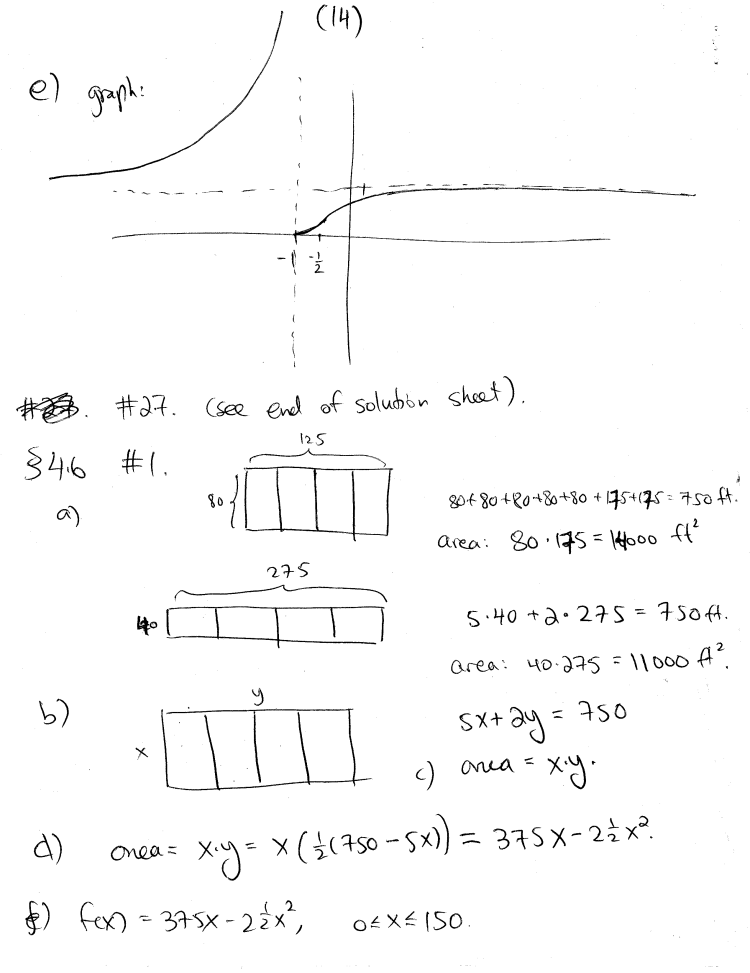 (14)
e) graph:
1
-1 -1/2
#27. (see end of solution sheet).
§4.6 #1.
125
80
a)
80+80+80+80+80+175+175=750 ft.
area: 80·175=14000 ft²
275
40
5·40+2·275=750ft.
area: 40·275=11000 ft².
b)
y
x
5x+2y=750
c) area = x·y.
d) area= x·y= x(½(750-5x))=375x-2½x².
f) f(x)=375x-2½x², 0≤x≤150.